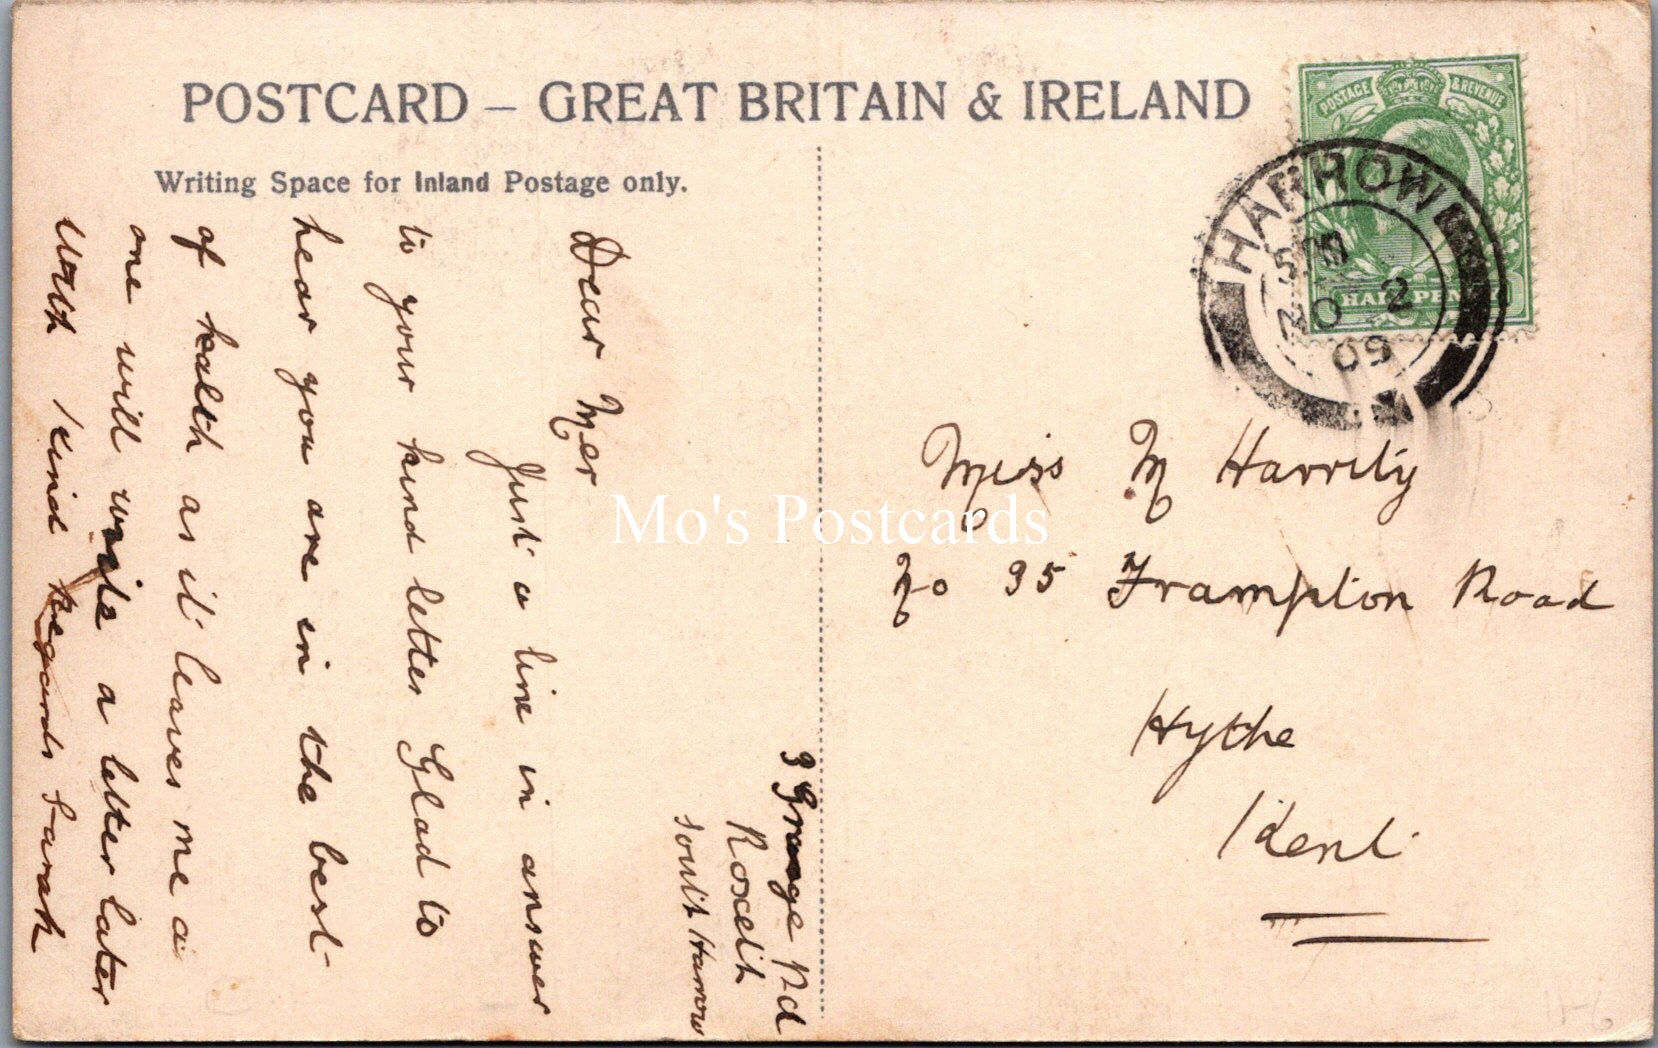 POSTCARD – GREAT BRITAIN & IRELAND
Writing Space for Inland Postage only.
POSTAGE & REVENUE
HALFPENNY
HARROW
30 2
09
3 Grange Rd
Roxeth
South Harrow
Dear Mer
Just a line in answer
to your kind letter Glad to
hear you are in the best
of health as it leaves me a
one will write a letter later
With Kind Regards Sarah
Miss M Harrity
No 35 Frampton Road
Hythe
Kent
Mo's Postcards